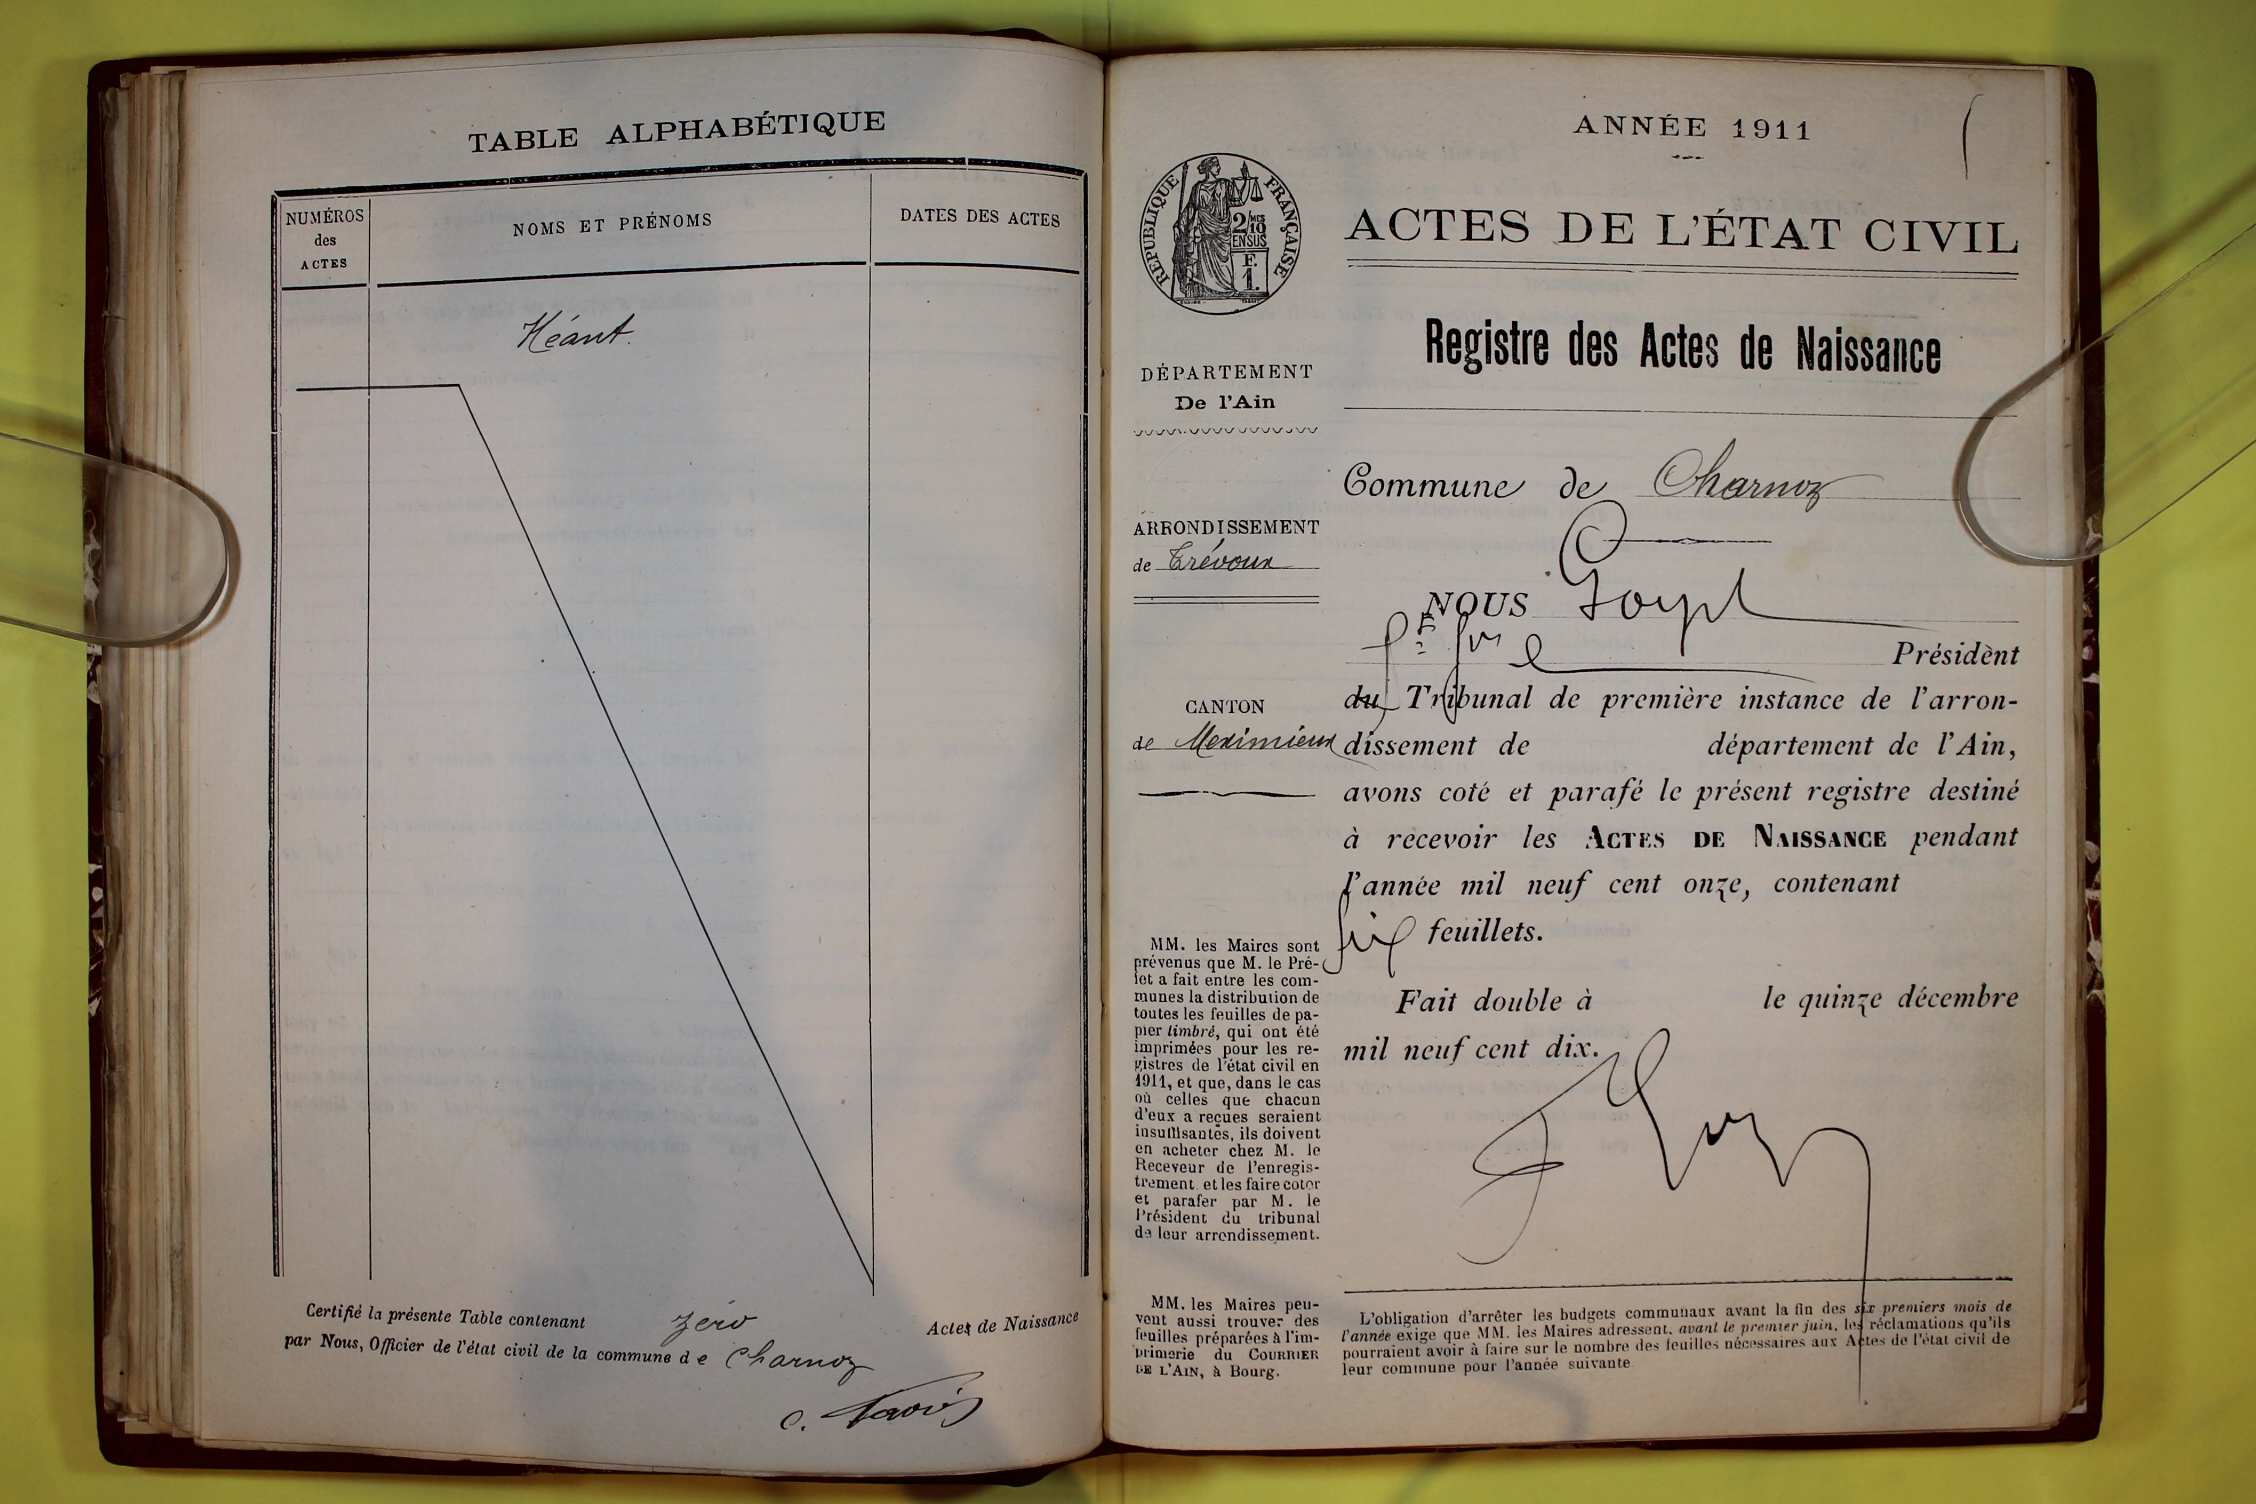 TABLE ALPHABÉTIQUE
NUMÉROS
des
ACTES
NOMS ET PRÉNOMS
DATES DES ACTES
Néant.
Certifié la présente Table contenant zéro Actes de Naissance
par Nous, Officier de l'état civil de la commune de Charnoz
C.
ANNÉE 1911
RÉPUBLIQUE FRANÇAISE
2/MES
10
EN SUS
F.
1.
ACTES DE L'ÉTAT CIVIL
Registre des Actes de Naissance
DÉPARTEMENT
De l'Ain
ARRONDISSEMENT
de Trévoux
CANTON
de Meximieux
MM. les Maires sont
prévenus que M. le Pré-
fet a fait entre les com-
munes la distribution de
toutes les feuilles de pa-
pier timbré, qui ont été
imprimées pour les re-
gistres de l'état civil en
1911, et que, dans le cas
où celles que chacun
d'eux a reçues seraient
insuffisantes, ils doivent
en acheter chez M. le
Receveur de l'enregis-
trement et les faire coter
et parafer par M. le
Président du tribunal
de leur arrondissement.
MM. les Maires peu-
vent aussi trouver des
feuilles préparées à l'im-
primerie du COURRIER
DE L'AIN, à Bourg.
Commune de Charnoz
NOUS
Président
du Tribunal de première instance de l'arron-
dissement de département de l'Ain,
avons coté et parafé le présent registre destiné
à recevoir les ACTES DE NAISSANCE pendant
l'année mil neuf cent onze, contenant
six feuillets.
Fait double à le quinze décembre
mil neuf cent dix.
L'obligation d'arrêter les budgets communaux avant la fin des six premiers mois de
l'année exige que MM. les Maires adressent, avant le premier juin, les réclamations qu'ils
pourraient avoir à faire sur le nombre des feuilles nécessaires aux Actes de l'état civil de
leur commune pour l'année suivante